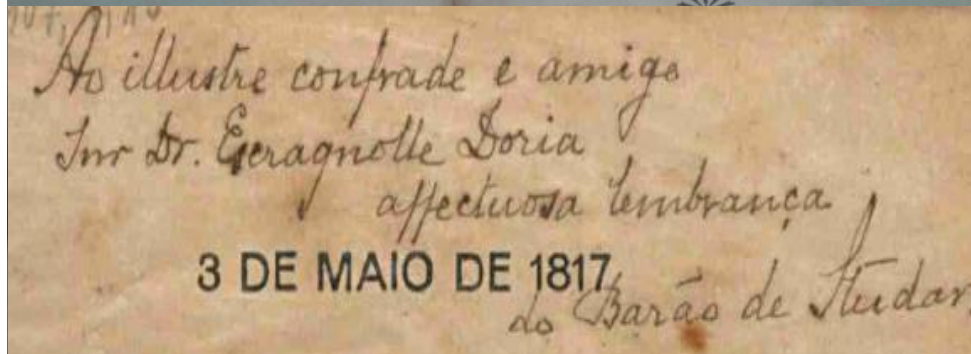 Ao illustre confrade e amigo
Snr Dr. Escragnolle Doria
affectuosa lembrança
3 DE MAIO DE 1817
do Barão de Studart